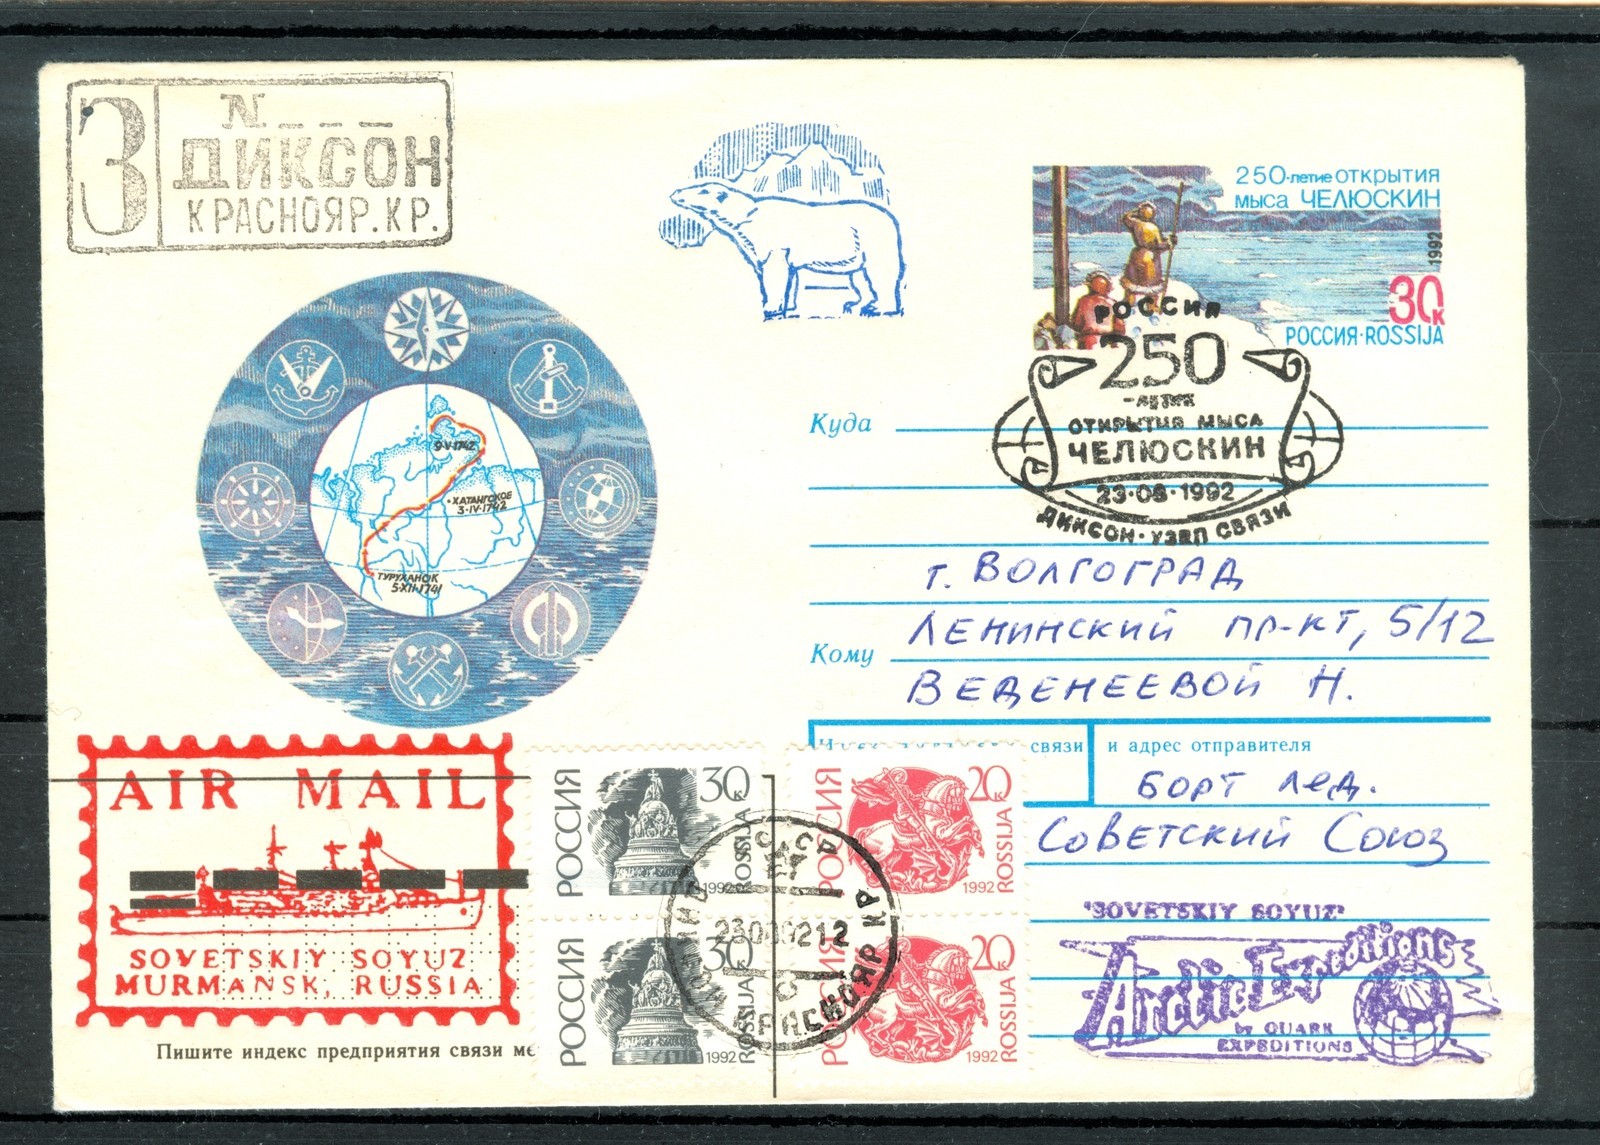 З
N
ДИКСОН
КРАСНОЯР.КР.
250-летие ОТКРЫТИЯ
МЫСА ЧЕЛЮСКИН
1992
30к
РОССИЯ·ROSSIJA
РОССИЯ
250
-летие
ОТКРЫТИЯ МЫСА
ЧЕЛЮСКИН
23·08·1992
ДИКСОН·УЗЕЛ СВЯЗИ
9-V-1742
ХАТАНГСКОЕ
3-IV-1742
ТУРУХАНСК
5-XII-1741
Куда
г. ВОЛГОГРАД
ЛЕНИНСКИЙ пр-кт, 5/12
Кому
ВЕДЕНЕЕВОЙ Н.
связи и адрес отправителя
борт лед.
Советский Союз
AIR MAIL
SOVETSKIY SOYUZ
MURMANSK, RUSSIA
РОССИЯ
30к
1992
ROSSIJA
РОССИЯ
20к
1992
ROSSIJA
РОССИЯ
30к
1992
ROSSIJA
РОССИЯ
20к
1992
ROSSIJA
"SOVETSKIY SOYUZ"
Arctic Expeditions
by QUARK
EXPEDITIONS
Пишите индекс предприятия связи